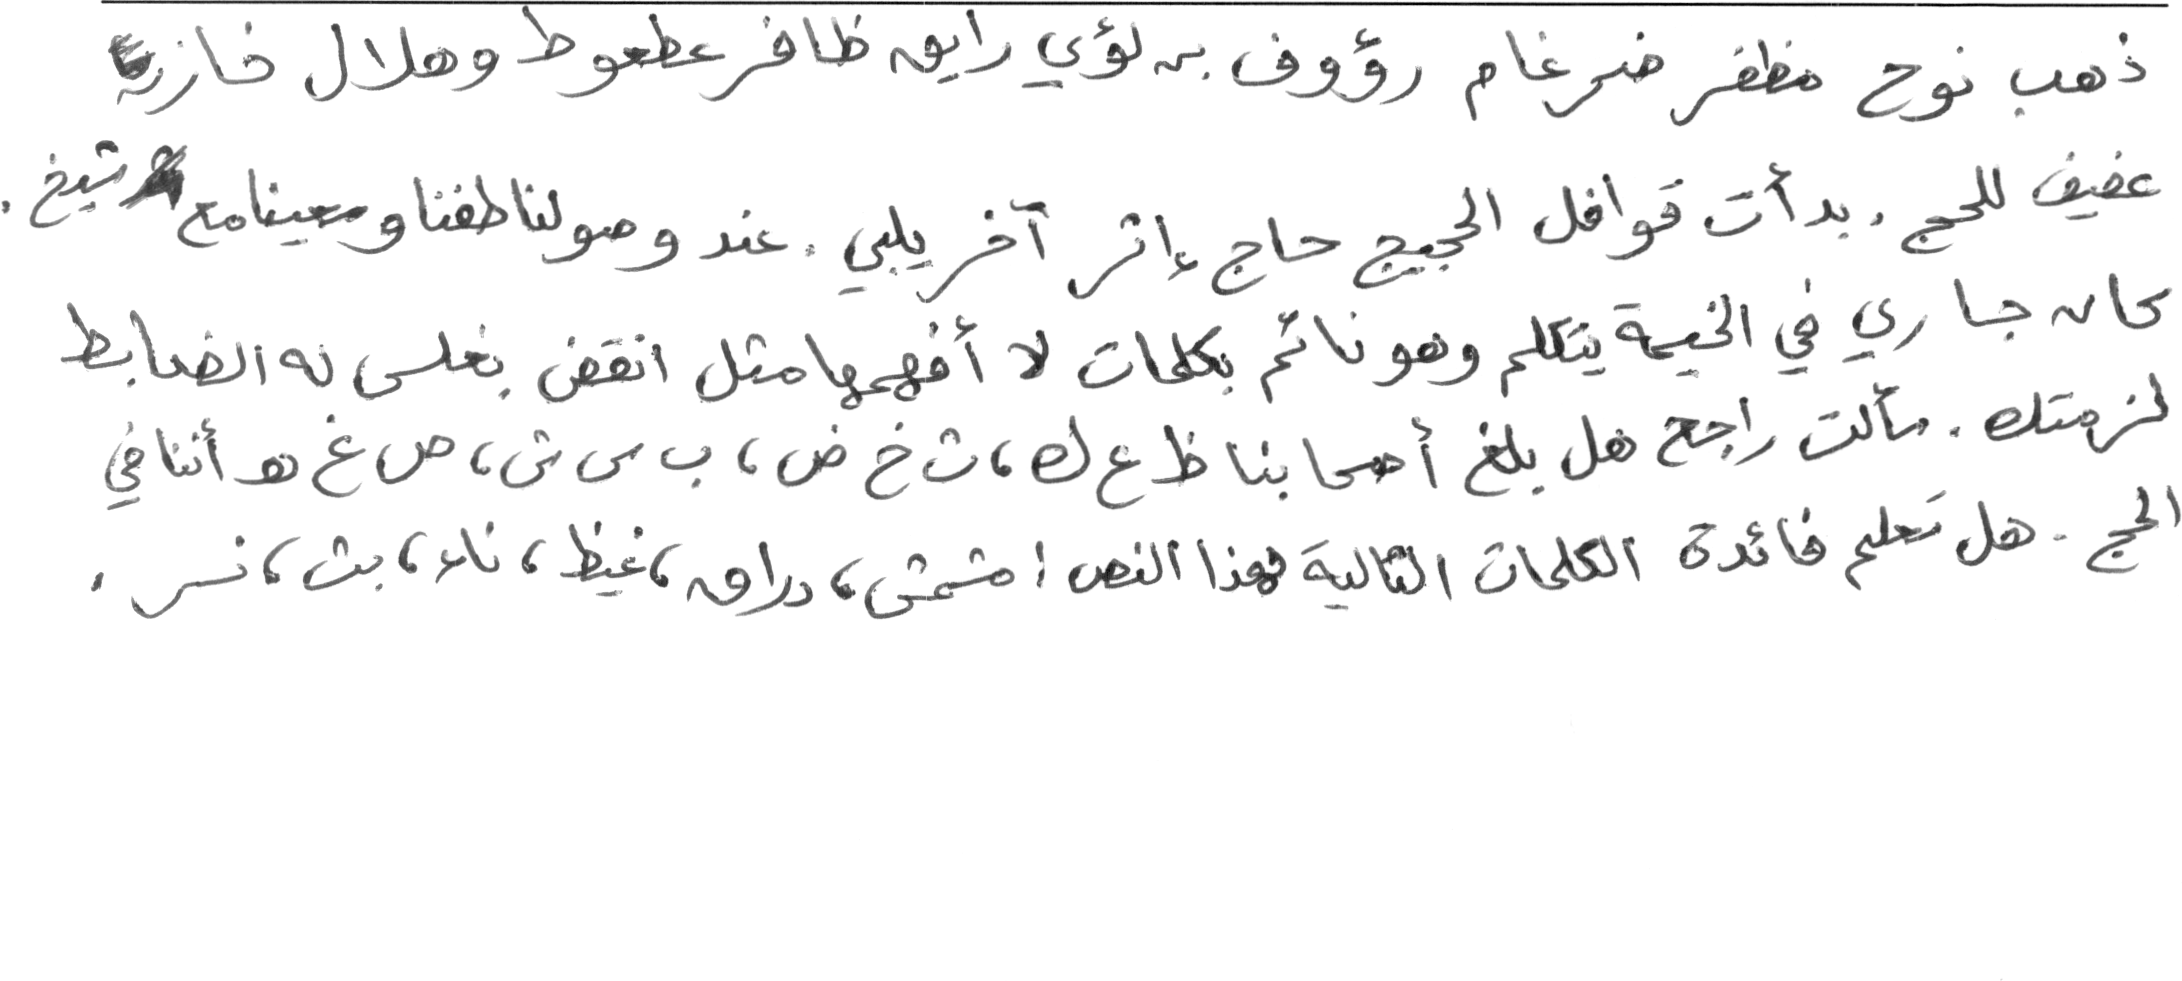 ذهب نوح مظفر ضرغام رؤوف بن لؤي رايق ظافر عطعوط وهلال خازن
عفيف للحج. بدأت قوافل الحجيج حاج إثر آخر يلبي. عند وصولنا طفنا وسعينا مع شيخ.
كان جاري في الخيمة يتكلم وهو نائم بكلمات لا أفهمها مثل انقض بغلس له الضابط
لزمتك. سألت راجح هل بلغ أصحابنا ظ ع ك، ث خ ض، ب س ش، ص غ هـ أننا في
الحج. هل تعلم فائدة الكلمات التالية لهذا النص: مشمش، دراق، غيظ، ناء، بث، نسر.